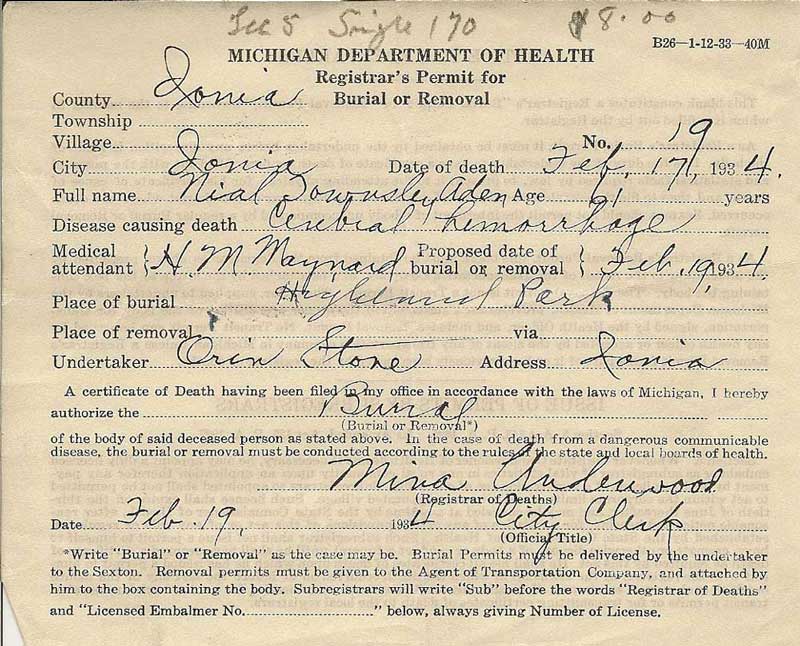 Sec 5 Single 170 $8.00
B26—1-12-33—40M
MICHIGAN DEPARTMENT OF HEALTH
Registrar's Permit for
Burial or Removal
County Ionia
Township
Village No. 19
City Ionia Date of death Feb. 17, 1934.
Full name Nial Townsley Aden Age 91 years
Disease causing death Cerebral hemorrhage
Medical attendant H. M. Maynard Proposed date of burial or removal Feb. 19, 1934
Place of burial Highland Park
Place of removal via
Undertaker Orin Stone Address Ionia
A certificate of Death having been filed in my office in accordance with the laws of Michigan, I hereby
authorize the Burial
(Burial or Removal*)
of the body of said deceased person as stated above. In the case of death from a dangerous communicable
disease, the burial or removal must be conducted according to the rules of the state and local boards of health.
Mina Underwood
(Registrar of Deaths)
Date Feb. 19, 1934 City Clerk
(Official Title)
*Write "Burial" or "Removal" as the case may be. Burial Permits must be delivered by the undertaker
to the Sexton. Removal permits must be given to the Agent of Transportation Company, and attached by
him to the box containing the body. Subregistrars will write "Sub" before the words "Registrar of Deaths"
and "Licensed Embalmer No. " below, always giving Number of License.